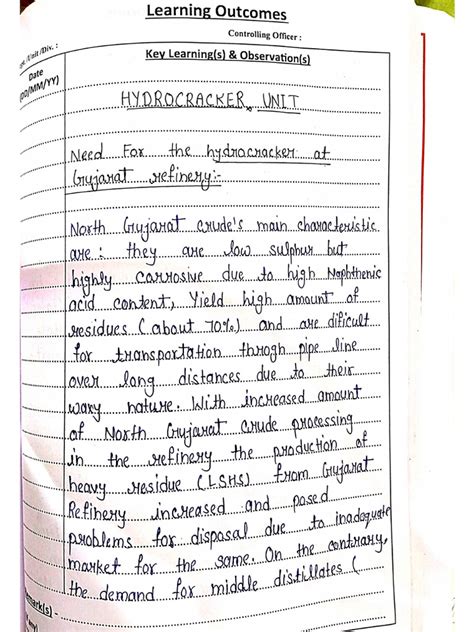 Learning Outcomes
Controlling Officer :
/Unit /Div. :
Date
(DD/MM/YY)
Key Learning(s) & Observation(s)
HYDROCRACKER UNIT
Need For the hydrocracker at
Gujarat refinery:-
North Gujarat crude's main characteristic
are : they are low sulphur but
highly corrosive due to high Naphthenic
acid content, Yield high amount of
residues ( about 70%) and are dificult
for transportation throgh pipe line
over long distances due to their
waxy nature. With increased amount
of North Gujarat Crude processing
in the refinery the production of
heavy residue (LSHS) from Gujarat
Refinery increased and posed
problems for disposal due to inadequate
market for the same. On the contrary,
the demand for middle distillates (
mark(s) -